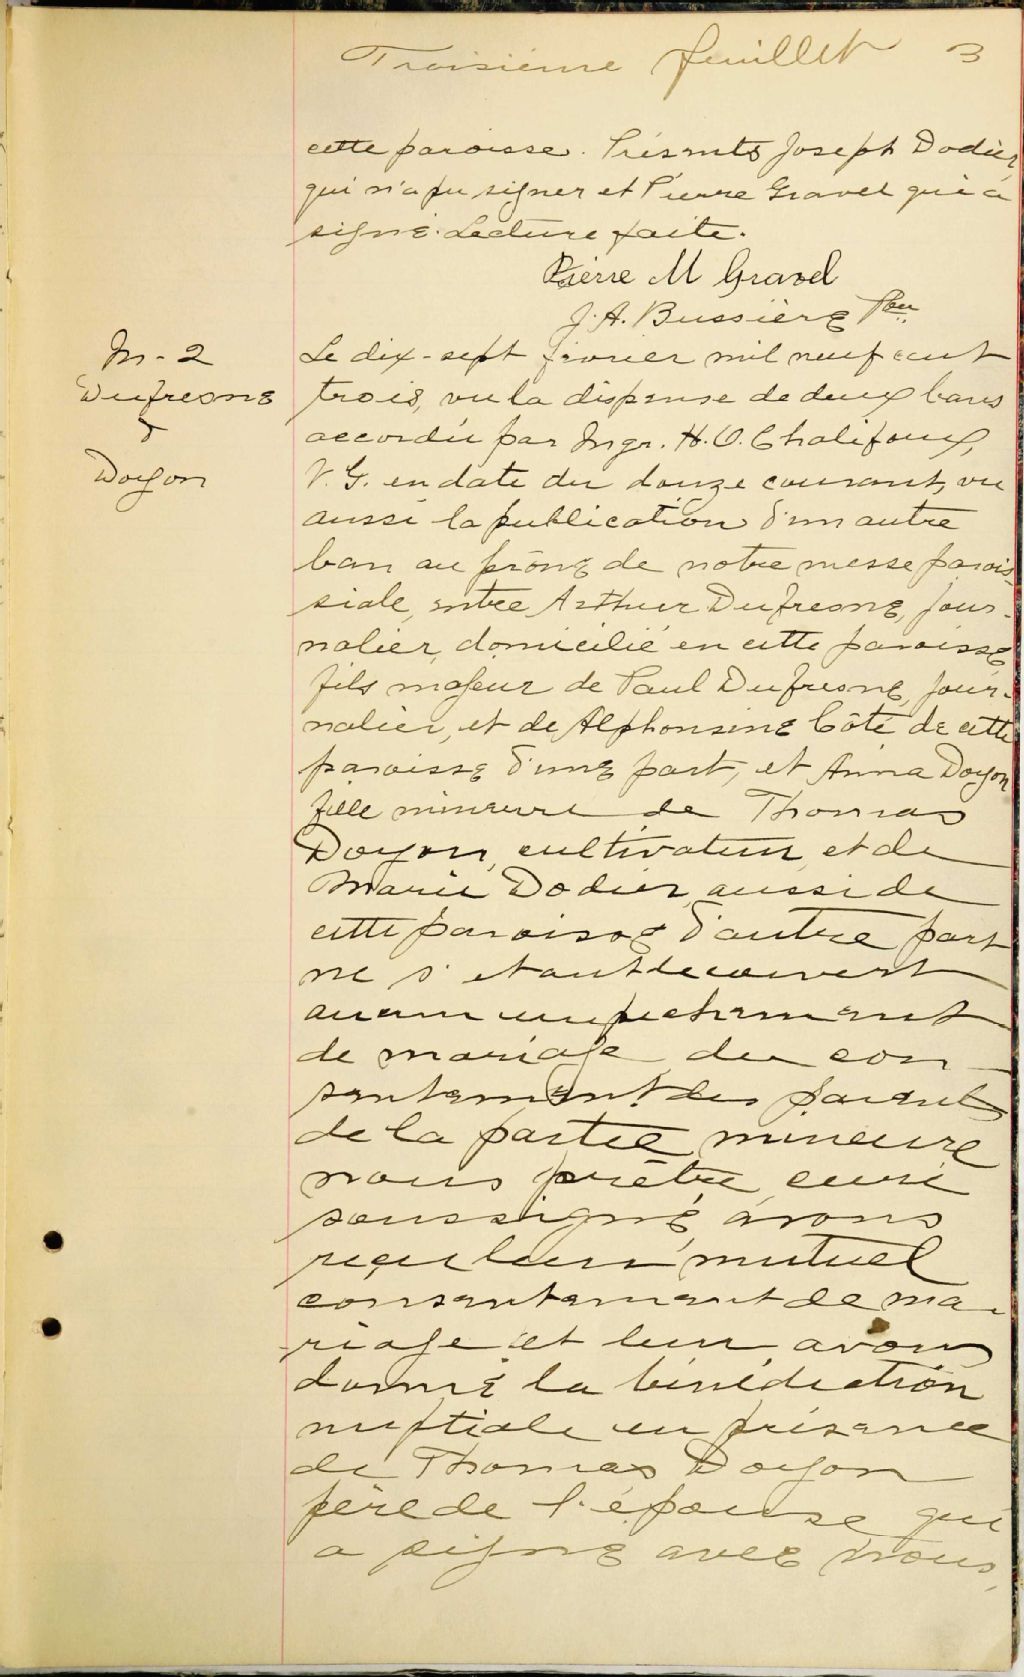 Troisième feuillet 3
cette paroisse. Présents Joseph Dodier
qui n'a pu signer et Pierre Gravel qui a
signé. Lecture faite.
Pierre M Gravel
J. A. Bussière Ptre
M - 2
Dufresne
&
Doyon
Le dix-sept février mil neuf cent
trois, vu la dispense de deux bans
accordée par Mgr. H. O. Chalifoux,
V. G. en date du douze courant, vu
aussi la publication d'un autre
ban au prône de notre messe parois-
siale, entre Arthur Dufresne, jour-
nalier, domicilié en cette paroisse,
fils majeur de Paul Dufresne, jour-
nalier, et de Alphonsine Côté de cette
paroisse d'une part, et Anna Doyon
fille mineure de Thomas
Doyon, cultivateur, et de
Marie Dodier, aussi de
cette paroisse d'autre part
ne s'étant decouvert
aucun empechement
de mariage du con-
sentement des parents
de la partie mineure
nous prêtre curé
soussigné, avons
reçu leur mutuel
consentement de ma-
riage et leur avons
donné la bénédiction
nuptiale en présence
de Thomas Doyon
père de l'épouse qui
a signé avec nous,